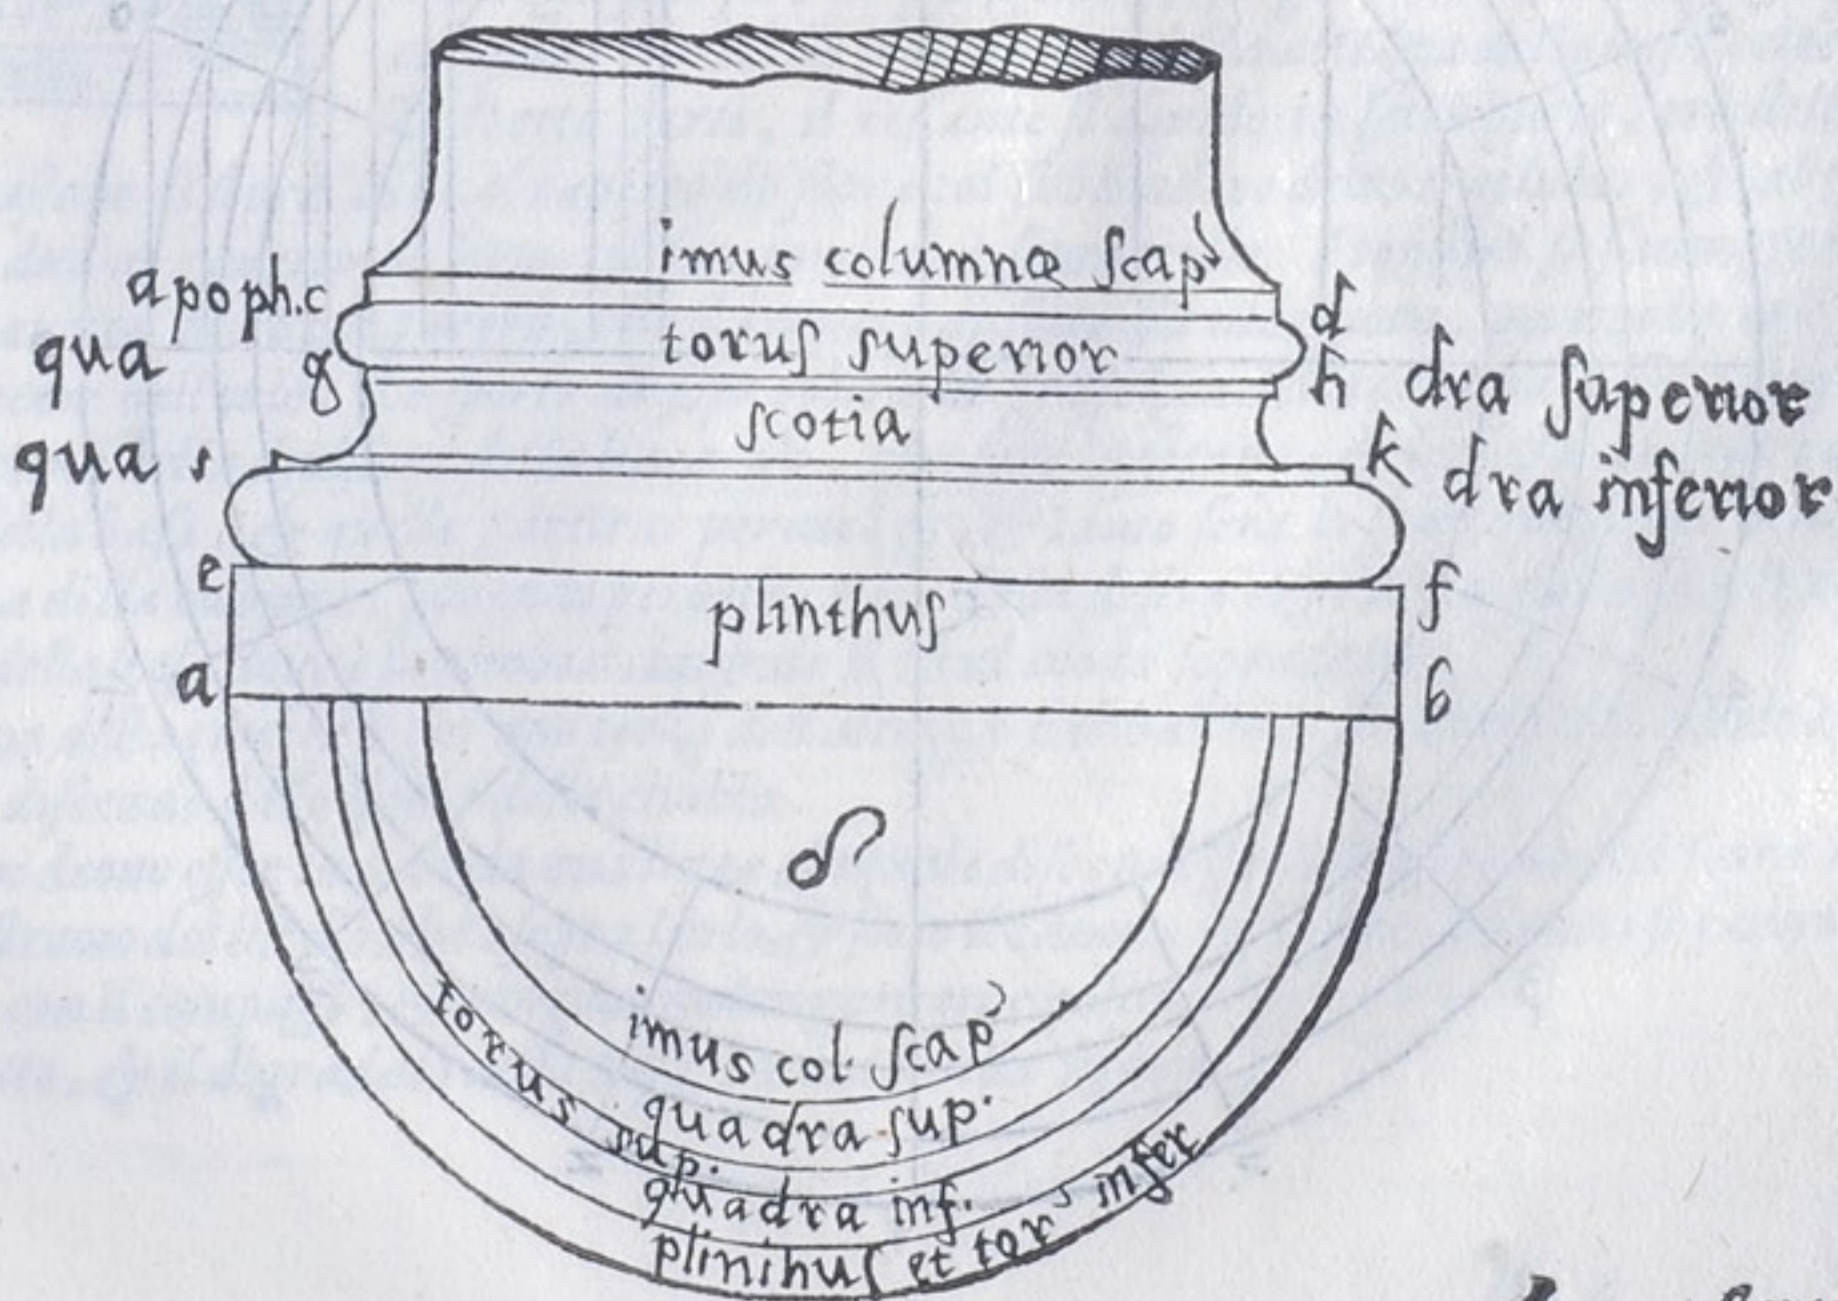 imus columnæ ſcap⁹
apoph. c
d
torus ſuperior
qua g
h dra ſuperior
ſcotia
qua
k dra inferior
e
f
plinthuſ
a
b
imus col. ſcap⁹
quadra ſup.
torus sup.
quadra inf.
plinthuſ et tor⁹ infer